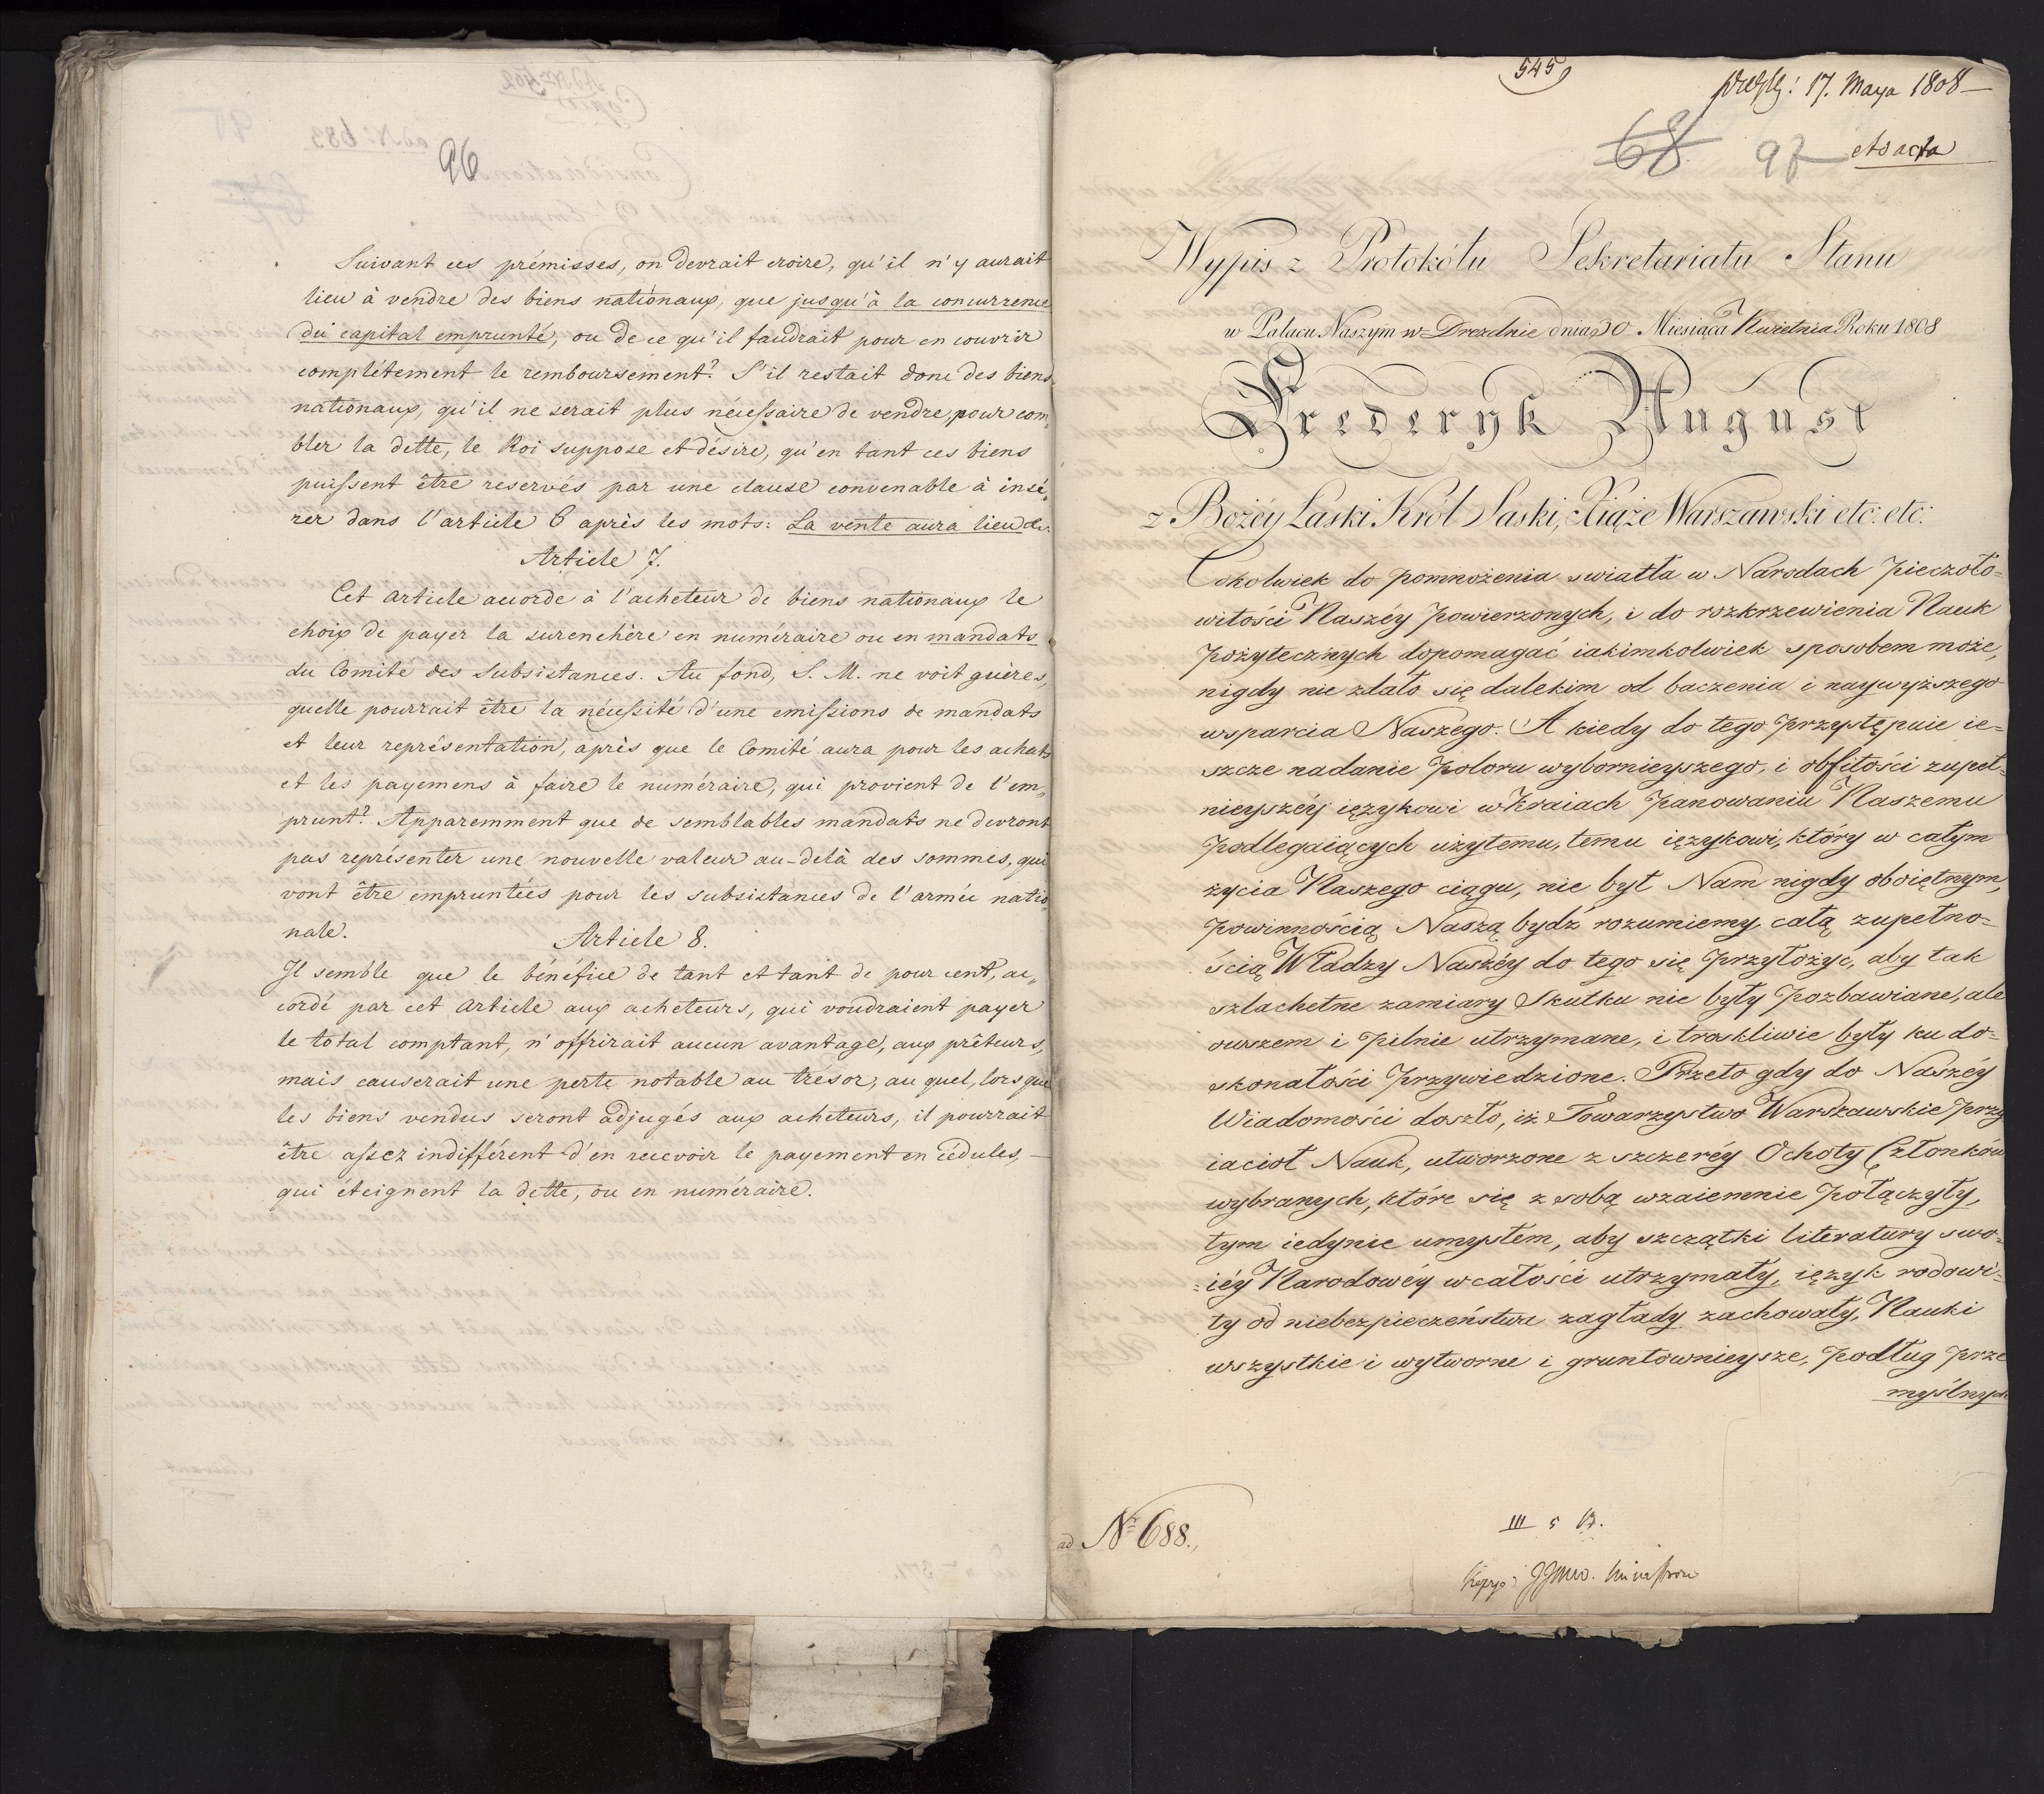 96
Suivant ces prémisses, on devrait croire, qu'il n'y aurait
lieu à vendre des biens nationaux, que jusqu'à la concurrence
du capital emprunté, ou de ce qu'il faudrait pour en couvrir
complétement le remboursement? S'il restait donc des biens
nationaux, qu'il ne serait plus nécessaire de vendre, pour com„
bler la dette, le Roi suppose et désire, qu'en tant ces biens
puissent être reservés par une clause convenable à insé„
rer dans l'article 6 après les mots: La vente aura lieu etc.
Article 7.
Cet article accorde à l'acheteur de biens nationaux le
choix de payer la surenchère en numéraire ou en mandats
du Comité des Subsistances. Au fond, S. M. ne voit guères,
quelle pourrait être la nécessité d'une emissions de mandats
et leur représentation, après que le Comité aura pour les achats
et les payemens à faire le numéraire, qui provient de l'em„
prunt? Apparemment que de semblables mandats ne devront
pas représenter une nouvelle valeur au-delà des sommes, qui
vont être empruntées pour les subsistances de l'armée natio„
nale.
Article 8.
Il semble que le bénéfice de tant et tant de pour cent, ac„
cordé par cet article aux acheteurs, qui voudraient payer
le total comptant, n'offrirait aucun avantage, aux prêteurs,
mais causerait une perte notable au trésor, au quel, lorsque
les biens vendus seront adjugés aux acheteurs, il pourrait
être assez indifférent d'en recevoir le payement en cédules, —
qui éteignent la dette, ou en numéraire.
545
17. Maya 1808 —
68 97 ad acta
Wypis z Protokółu Sekretariatu Stanu
w Pałacu Naszym w Dreznie dnia 30 Miesiąca Kwietnia Roku 1808
Frederyk August
z Bożéy Łaski Król Saski, Xiąże Warszawski etc: etc:
Cokolwiek do pomnożenia swiatła w Narodach pieczoło=
witości Naszéy powierzonych, i do rozkrzewienia Nauk
pożytecznych dopomagać iakimkolwiek sposobem może,
nigdy nie zdało się dalekim od baczenia i naywyższego
wsparcia Naszego. A kiedy do tego przystępuie ie=
szcze nadanie poloru wybornieyszego, i obfitości zupeł=
nieyszéy ięzykowi w Kraiach panowaniu Naszemu
podlegaiących użytemu, temu ięzykowi, który w całym
życia Naszego ciągu, nie był Nam nigdy oboiętnym,
powinnością Naszą bydź rozumiemy całą zupełno=
ścią Władzy Naszéy do tego się przyłożyć, aby tak
szlachetne zamiary Skutku nie były pozbawiane, ale
owszem i pilnie utrzymane, i troskliwie były ku do=
skonałości przywiedzione. Przeto gdy do Naszéy
Wiadomości doszło, iż Towarzystwo Warszawskie przy
iaciół Nauk, utworzone z szczeréy Ochoty Członków
wybranych, które się z sobą wzaiemnie połączyły,
tym iedynie umysłem, aby szczątki literatury swo=
=iéy Narodowéy w całości utrzymały, ięzyk rodowi=
ty od niebezpieczeństwa zagłady zachowały, Nauki
wszystkie i wytworne i gruntownieysze, podług prze
myślnych
ad No 688.
III 5